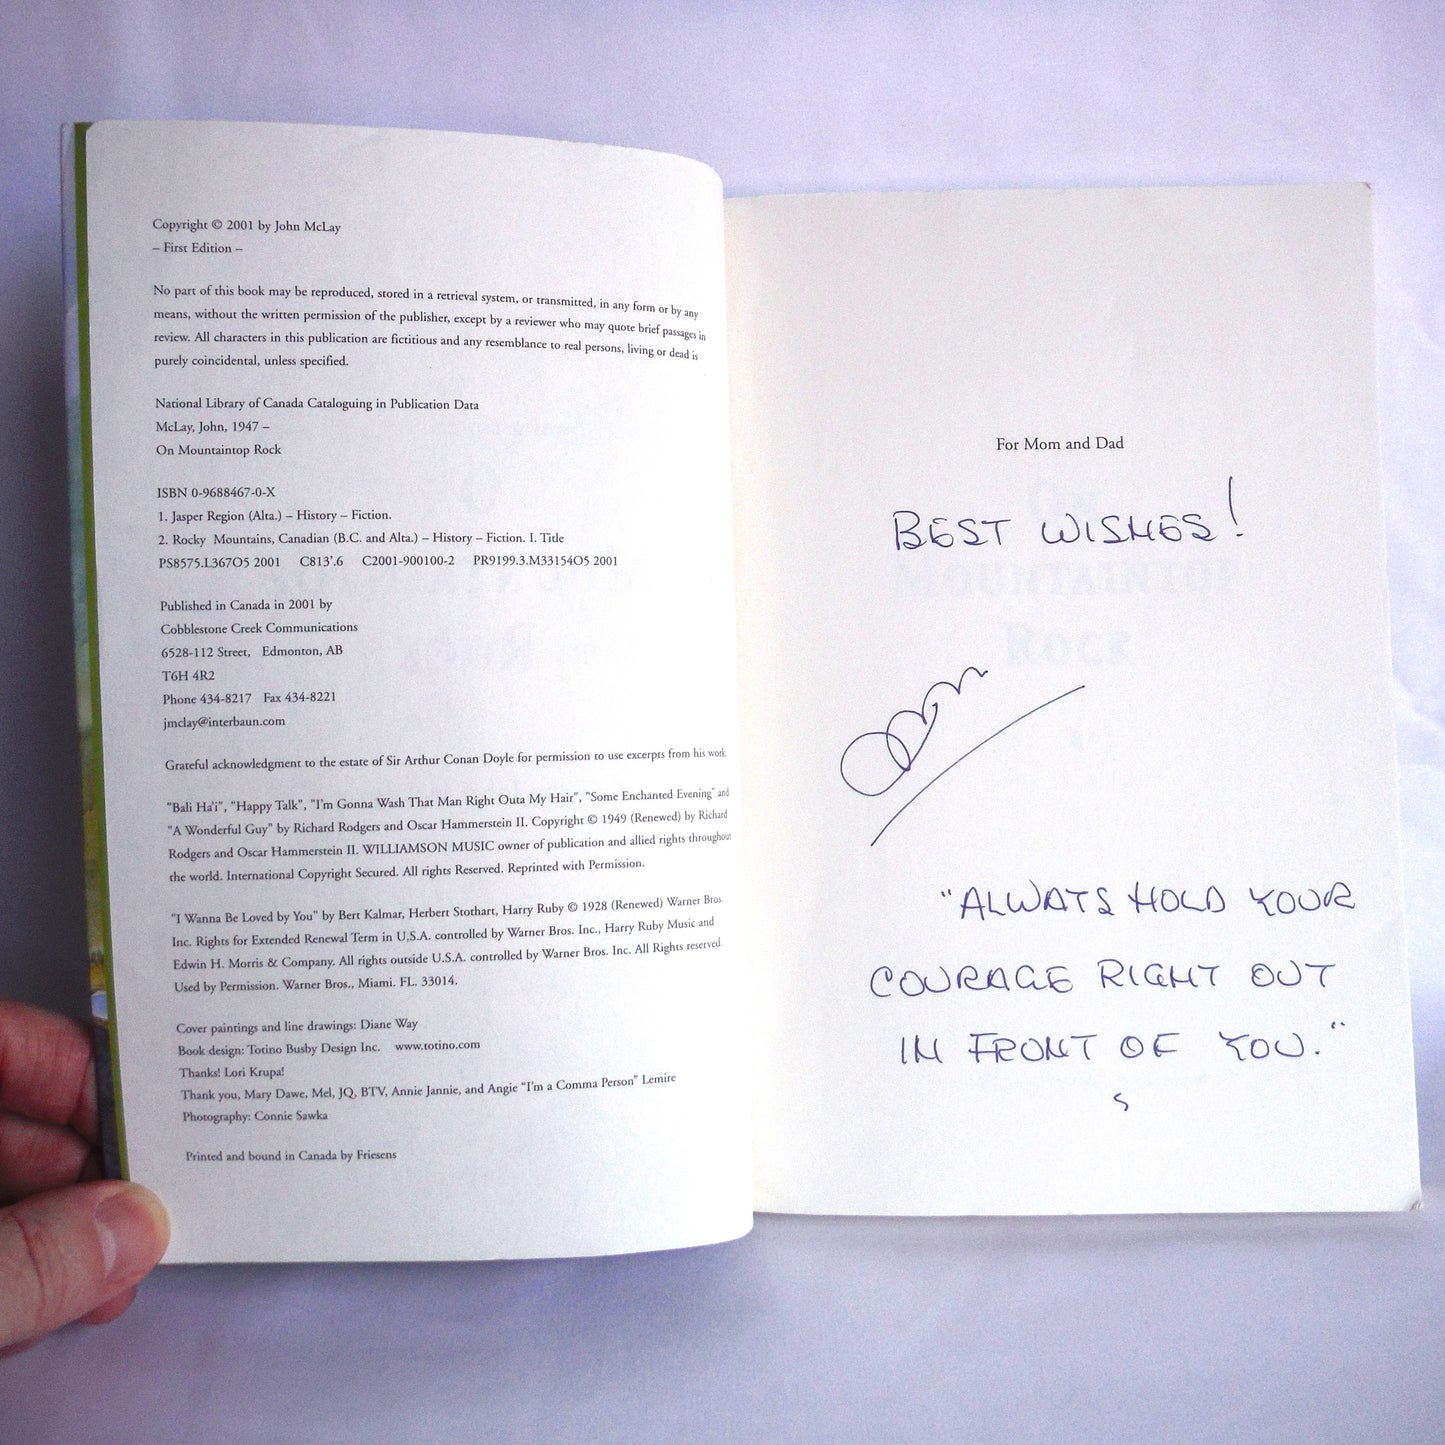 Copyright © 2001 by John McLay
– First Edition –
No part of this book may be reproduced, stored in a retrieval system, or transmitted, in any form or by any
means, without the written permission of the publisher, except by a reviewer who may quote brief passages in
review. All characters in this publication are fictitious and any resemblance to real persons, living or dead is
purely coincidental, unless specified.
National Library of Canada Cataloguing in Publication Data
McLay, John, 1947 –
On Mountaintop Rock
ISBN 0-9688467-0-X
1. Jasper Region (Alta.) – History – Fiction.
2. Rocky Mountains, Canadian (B.C. and Alta.) – History – Fiction. I. Title
PS8575.L367O5 2001 C813'.6 C2001-900100-2 PR9199.3.M33154O5 2001
Published in Canada in 2001 by
Cobblestone Creek Communications
6528-112 Street, Edmonton, AB
T6H 4R2
Phone 434-8217 Fax 434-8221
jmclay@interbaun.com
Grateful acknowledgment to the estate of Sir Arthur Conan Doyle for permission to use excerpts from his work.
"Bali Ha'i", "Happy Talk", "I'm Gonna Wash That Man Right Outa My Hair", "Some Enchanted Evening" and
"A Wonderful Guy" by Richard Rodgers and Oscar Hammerstein II. Copyright © 1949 (Renewed) by Richard
Rodgers and Oscar Hammerstein II. WILLIAMSON MUSIC owner of publication and allied rights throughout
the world. International Copyright Secured. All rights Reserved. Reprinted with Permission.
"I Wanna Be Loved by You" by Bert Kalmar, Herbert Stothart, Harry Ruby © 1928 (Renewed) Warner Bros.
Inc. Rights for Extended Renewal Term in U.S.A. controlled by Warner Bros. Inc., Harry Ruby Music and
Edwin H. Morris & Company. All rights outside U.S.A. controlled by Warner Bros. Inc. All Rights reserved.
Used by Permission. Warner Bros., Miami. FL. 33014.
Cover paintings and line drawings: Diane Way
Book design: Totino Busby Design Inc. www.totino.com
Thanks! Lori Krupa!
Thank you, Mary Dawe, Mel, JQ, BTV, Annie Jannie, and Angie "I'm a Comma Person" Lemire
Photography: Connie Sawka
Printed and bound in Canada by Friesens
For Mom and Dad
BEST WISHES!
ON
MOUNTAINTOP
ROCK
"ALWAYS HOLD YOUR
COURAGE RIGHT OUT
IN FRONT OF YOU."